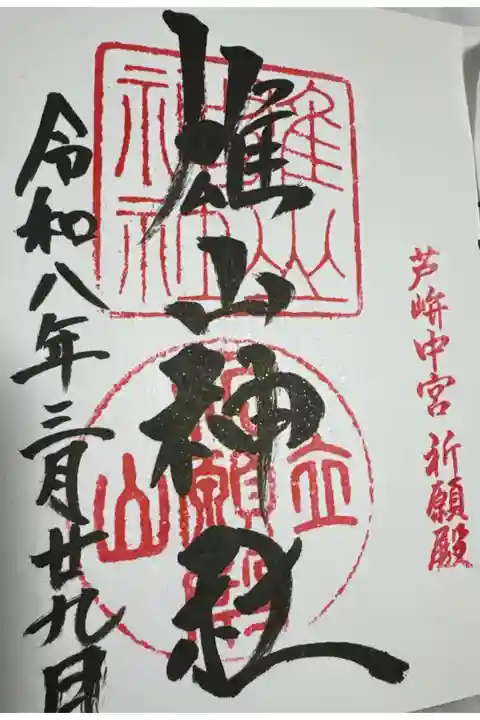 芦峅中宮 祈願殿
雄山神社
令和八年三月廿九日
雄山神社
立山
祈願殿